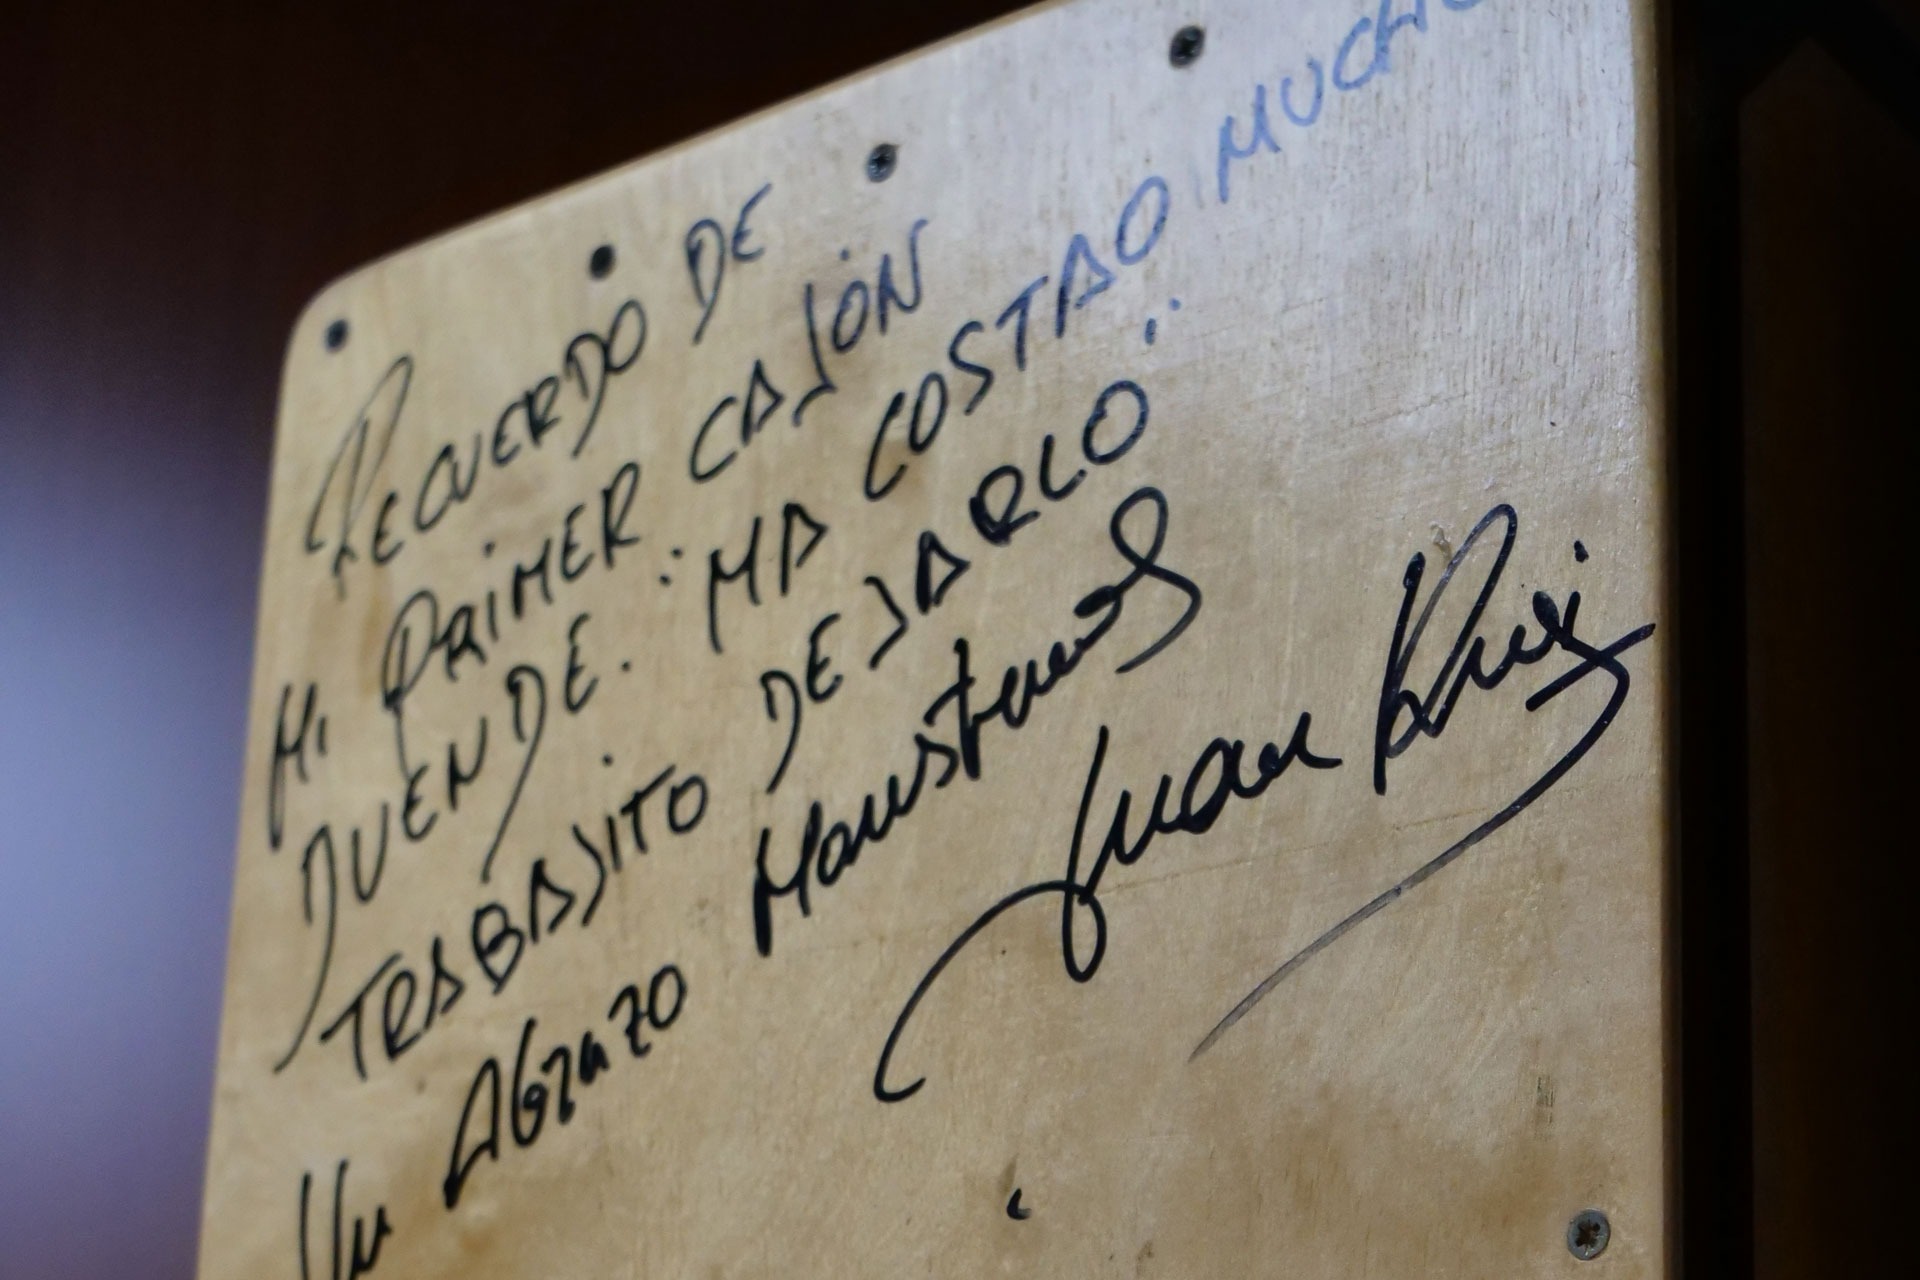 RECUERDO DE
MI PRIMER CAJÓN
DUENDE. MA COSTAO MUCHO
TRABAJITO DEJARLO
Un Abrazo
Juan Ruiz